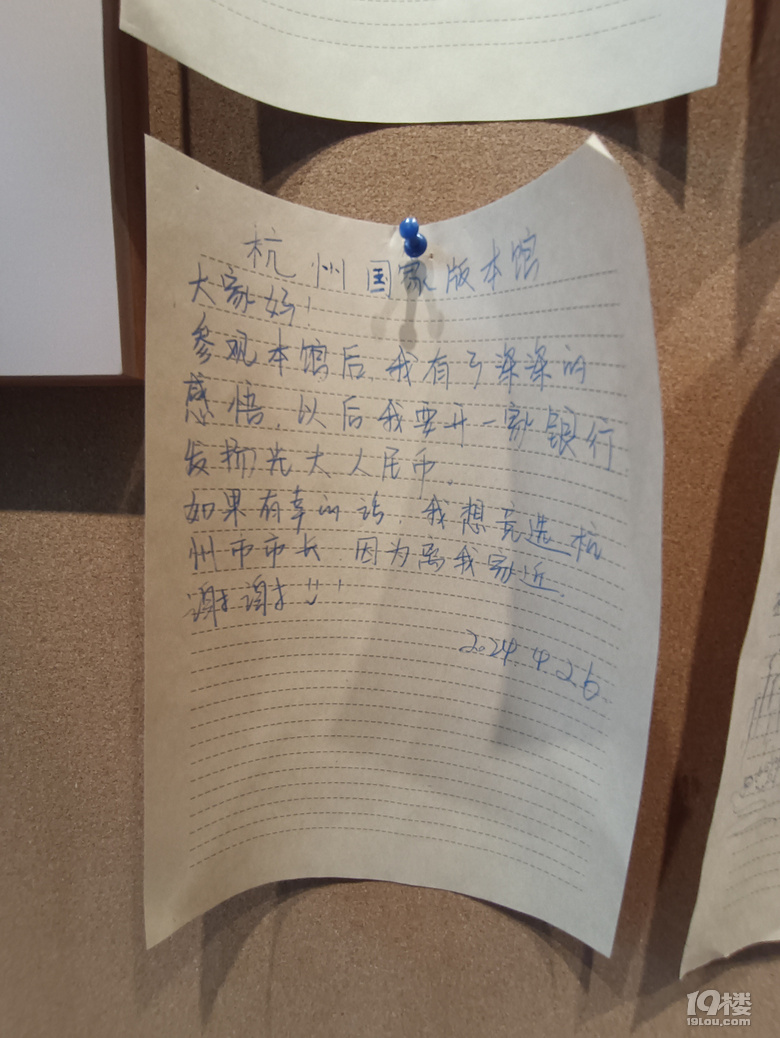 杭州国家版本馆
大家好!
参观本馆后,我有了深深的
感悟,以后我要开一家银行
发扬光大人民币。
如果有幸的话,我想竞选杭
州市市长 因为离我家近.
谢谢!!
2024.4.26
19楼
19lou.com